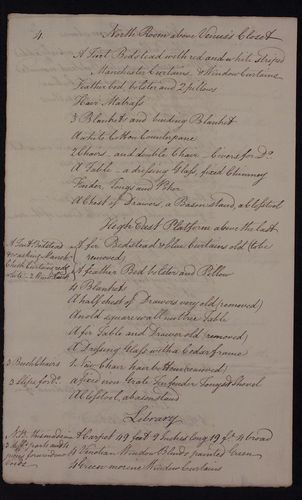 4
North Room above Venus's Closet
A Tent Bedstead with red and white striped
Manchester Curtains & Window Curtains
Feather bed bolster and 2 pillows
Hair Matrass
3 Blankets and binding Blanket
A white Cotton Counterpane
2 Chairs and double Chair Covers for Do.
A Table - a dressing Glass, fixed Chimney
Fender, Tongs and Poker
A Chest of Drawers, a Bason Stand, a Closestool
High East Platform above the last
A Tent Bedstead
& washing
Curtains red
& white 2 Wind. Curt.
A fir Bedstead & blue Curtains old (to be
removed)
A feather Bed bolster and Pillow
4 Blankets
A half chest of Drawers very old (removed)
An old square wallnut tree Table
A fir Table and Drawer old (removed)
A Dressing Glass with a Cedar frame
3 Beech Chairs
1 Chair hair bottom (removed)
3 Slips for do.
a fixed iron Grate Fender Tongs & Shovel
A Closestool, a bason stand
Library
N.B. this made in
3 parts
for window
A Carpet 49 feet 9 Inches long 19 ft. 4 broad
4 Venetian Window Blinds painted Green
4 Green moreen Window Curtains